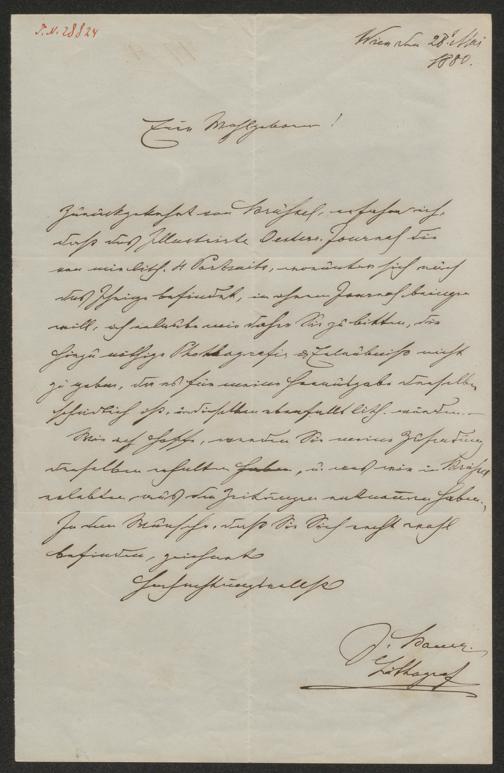 I. N. 28824
Wien den 28t Mai
1880.
Euer Wohlgeboren!
Zurückgekehrt von Brüssel, erfahre ich,
daß das Illustrirte Oesterr. Journal die
von mir lith. 4 Portraits, worunter sich auch
das Ihrige befindet, in ihrem Journal bringen
will, ich erlaube mir daher Sie zu bitten, die
hiezu nöthige Photografie & Erlaubniß nicht
zu geben, da es für meine Herausgabe derselben
schädlich ist, dieselben ebenfalls lith. werden.
Wie ich hoffe, werden Sie meine Zusendung
derselben erhalten haben, u. was wir in Brüssel
erlebten, aus den Zeitungen entnommen haben.
In dem Wunsche, daß Sie Sich recht wohl
befinden, zeichnet
Hochachtungsvollst
J. Bauer
Lithograf